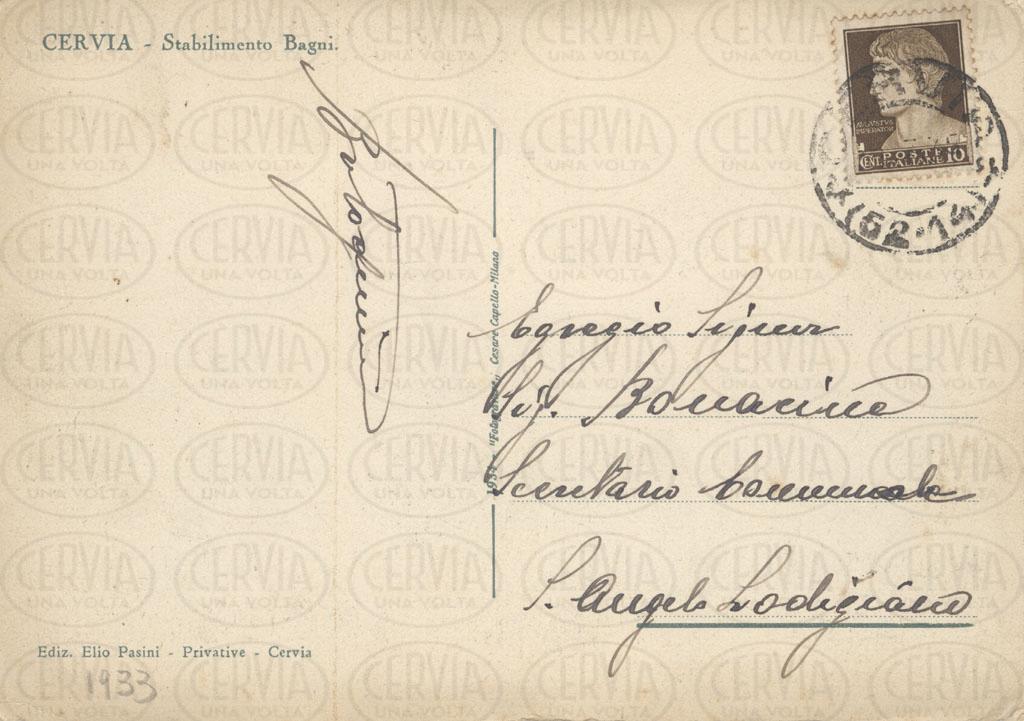 CERVIA - Stabilimento Bagni.
AVGVSTVS
IMPERATOR
CENT. POSTE ITALIANE 10
(52-14)
Egregio Signor
Sig. Bonacina
Segretario Comunale
S. Angelo Lodigiano
Cesare Capello-Milano
Ediz. Elio Pasini - Privative - Cervia
1933
CERVIA
UNA VOLTA